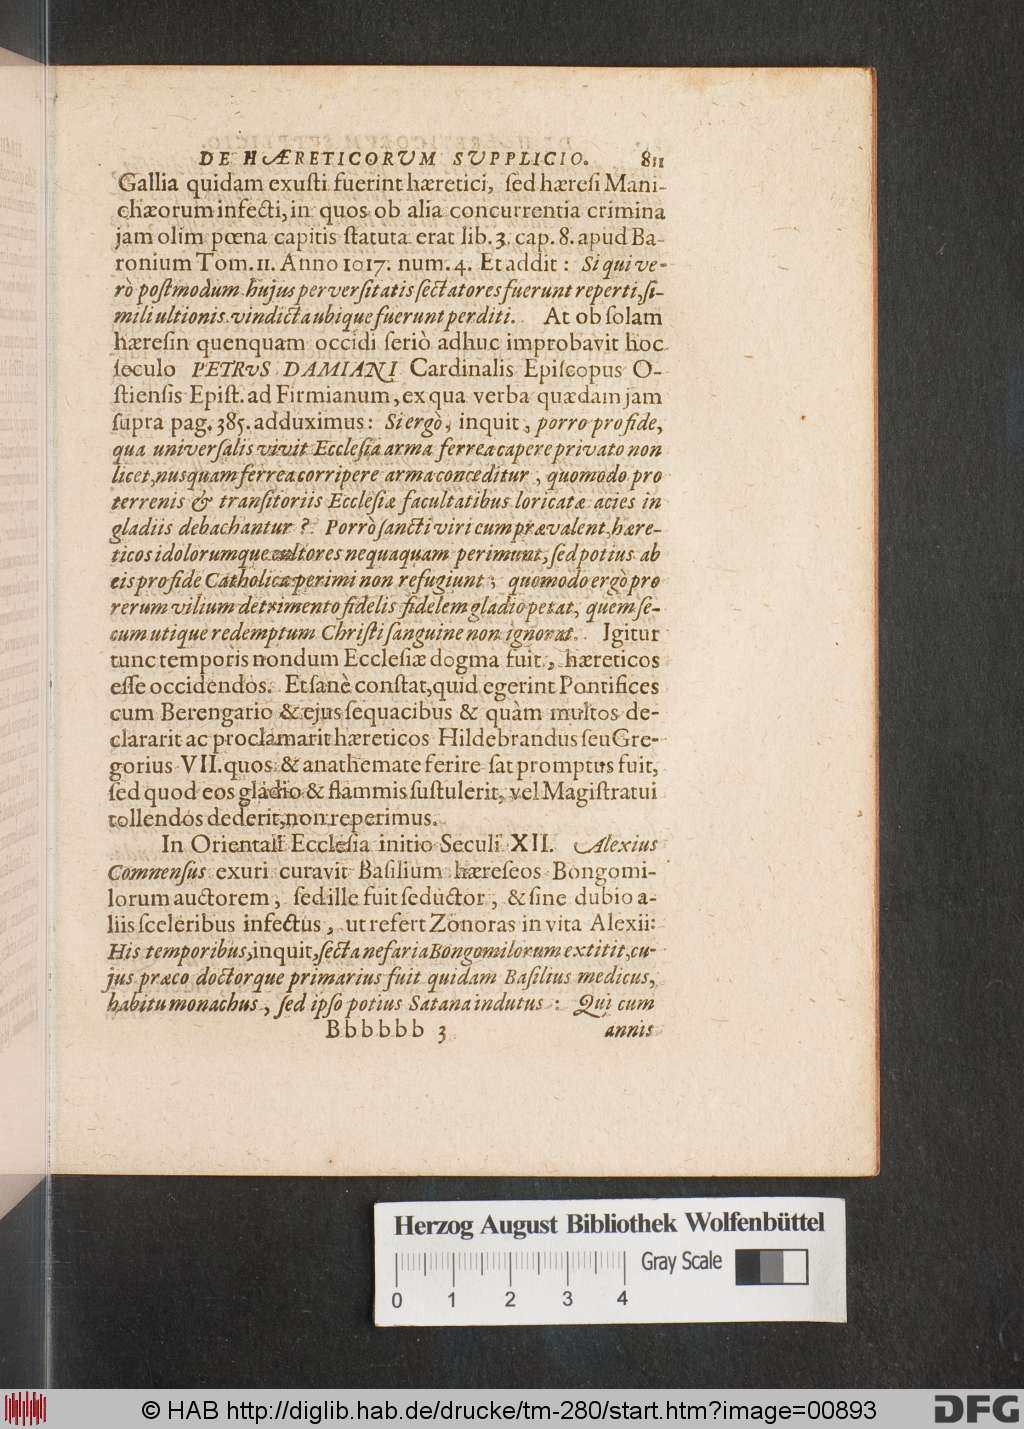 DE HÆRETICORVM SVPPLICIO. 811
Gallia quidam exusti fuerint hæretici, sed hæresi Mani-
chæorum infecti, in quos ob alia concurrentia crimina
jam olim pœna capitis statuta erat lib. 3. cap. 8. apud Ba-
ronium Tom. 11. Anno 1017. num. 4. Et addit: Si qui ve-
rò postmodum hujus perversitatis sectatores fuerunt reperti, si-
mili ultionis vindicta ubique fuerunt perditi. At ob solam
hæresin quenquam occidi seriò adhuc improbavit hoc
seculo PETRVS DAMIANI Cardinalis Episcopus O-
stiensis Epist. ad Firmianum, ex qua verba quædam jam
supra pag. 385. adduximus: Si ergò, inquit, porro pro fide,
qua universalis vivit Ecclesia arma ferrea capere privato non
licet, nusquam ferrea corripere arma conceditur, quomodo pro
terrenis & transitoriis Ecclesiæ facultatibus loricatæ acies in
gladiis debachantur? Porrò sancti viri cum prævalent, hære-
ticos idolorumque cultores nequaquam perimunt, sed potius ab
eis pro fide Catholica perimi non refugiunt; quomodo ergò pro
rerum vilium detrimento fidelis fidelem gladio petat, quem se-
cum utique redemptum Christi sanguine non ignorat. Igitur
tunc temporis nondum Ecclesiæ dogma fuit, hæreticos
esse occidendos. Et sanè constat, quid egerint Pontifices
cum Berengario & ejus sequacibus & quàm multos de-
clararit ac proclamarit hæreticos Hildebrandus seu Gre-
gorius VII. quos & anathemate ferire sat promptus fuit,
sed quod eos gladio & flammis sustulerit, vel Magistratui
tollendos dederit, non reperimus.
In Orientali Ecclesia initio Seculi XII. Alexius
Comnensus exuri curavit Basilium hæreseos Bongomi-
lorum auctorem, sed ille fuit seductor, & sine dubio a-
liis sceleribus infectus, ut refert Zonoras in vita Alexii:
His temporibus, inquit, secta nefaria Bongomilorum extitit, cu-
jus præco doctorque primarius fuit quidam Basilius medicus,
habitu monachus, sed ipso potius Satana indutus: Qui cum
Bbbbbb 3 annis
Herzog August Bibliothek Wolfenbüttel
Gray Scale
0 1 2 3 4
© HAB http://diglib.hab.de/drucke/tm-280/start.htm?image=00893
DFG